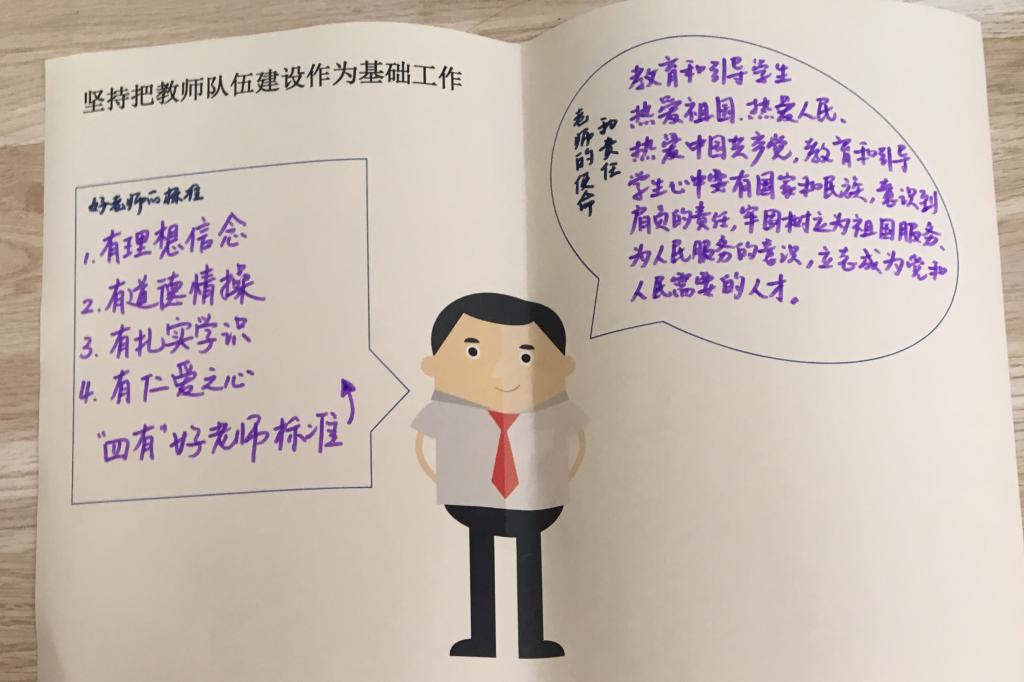 坚持把教师队伍建设作为基础工作
好老师的标准
1.有理想信念
2.有道德情操
3.有扎实学识
4.有仁爱之心
"四有"好老师标准
老师的使命
和责任
教育和引导学生
热爱祖国、热爱人民、
热爱中国共产党，教育和引导
学生心中要有国家和民族，意识到
肩负的责任，牢固树立为祖国服务、
为人民服务的意识，立志成为党和
人民需要的人才。